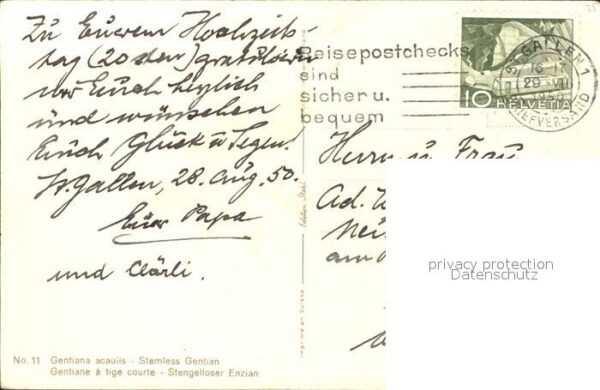 Zu Eurem Hochzeits-
tag (20 sten) gratulieren
wir Euch herzlich
und wünschen
Euch Glück u. Segen.
St. Gallen, 28. Aug. 50.
Euer Papa
und Clärli.
No. 11 Gentiana acaulis - Stemless Gentian
Gentiane à tige courte - Stengelloser Enzian
Imprimé en Suisse
Reisepostchecks
sind
sicher u.
bequem
ST. GALLEN 1
16
29. VIII
1950
BRIEFVERSAND
10 HELVETIA
Herrn u. Frau
Ad.
am
privacy protection
Datenschutz